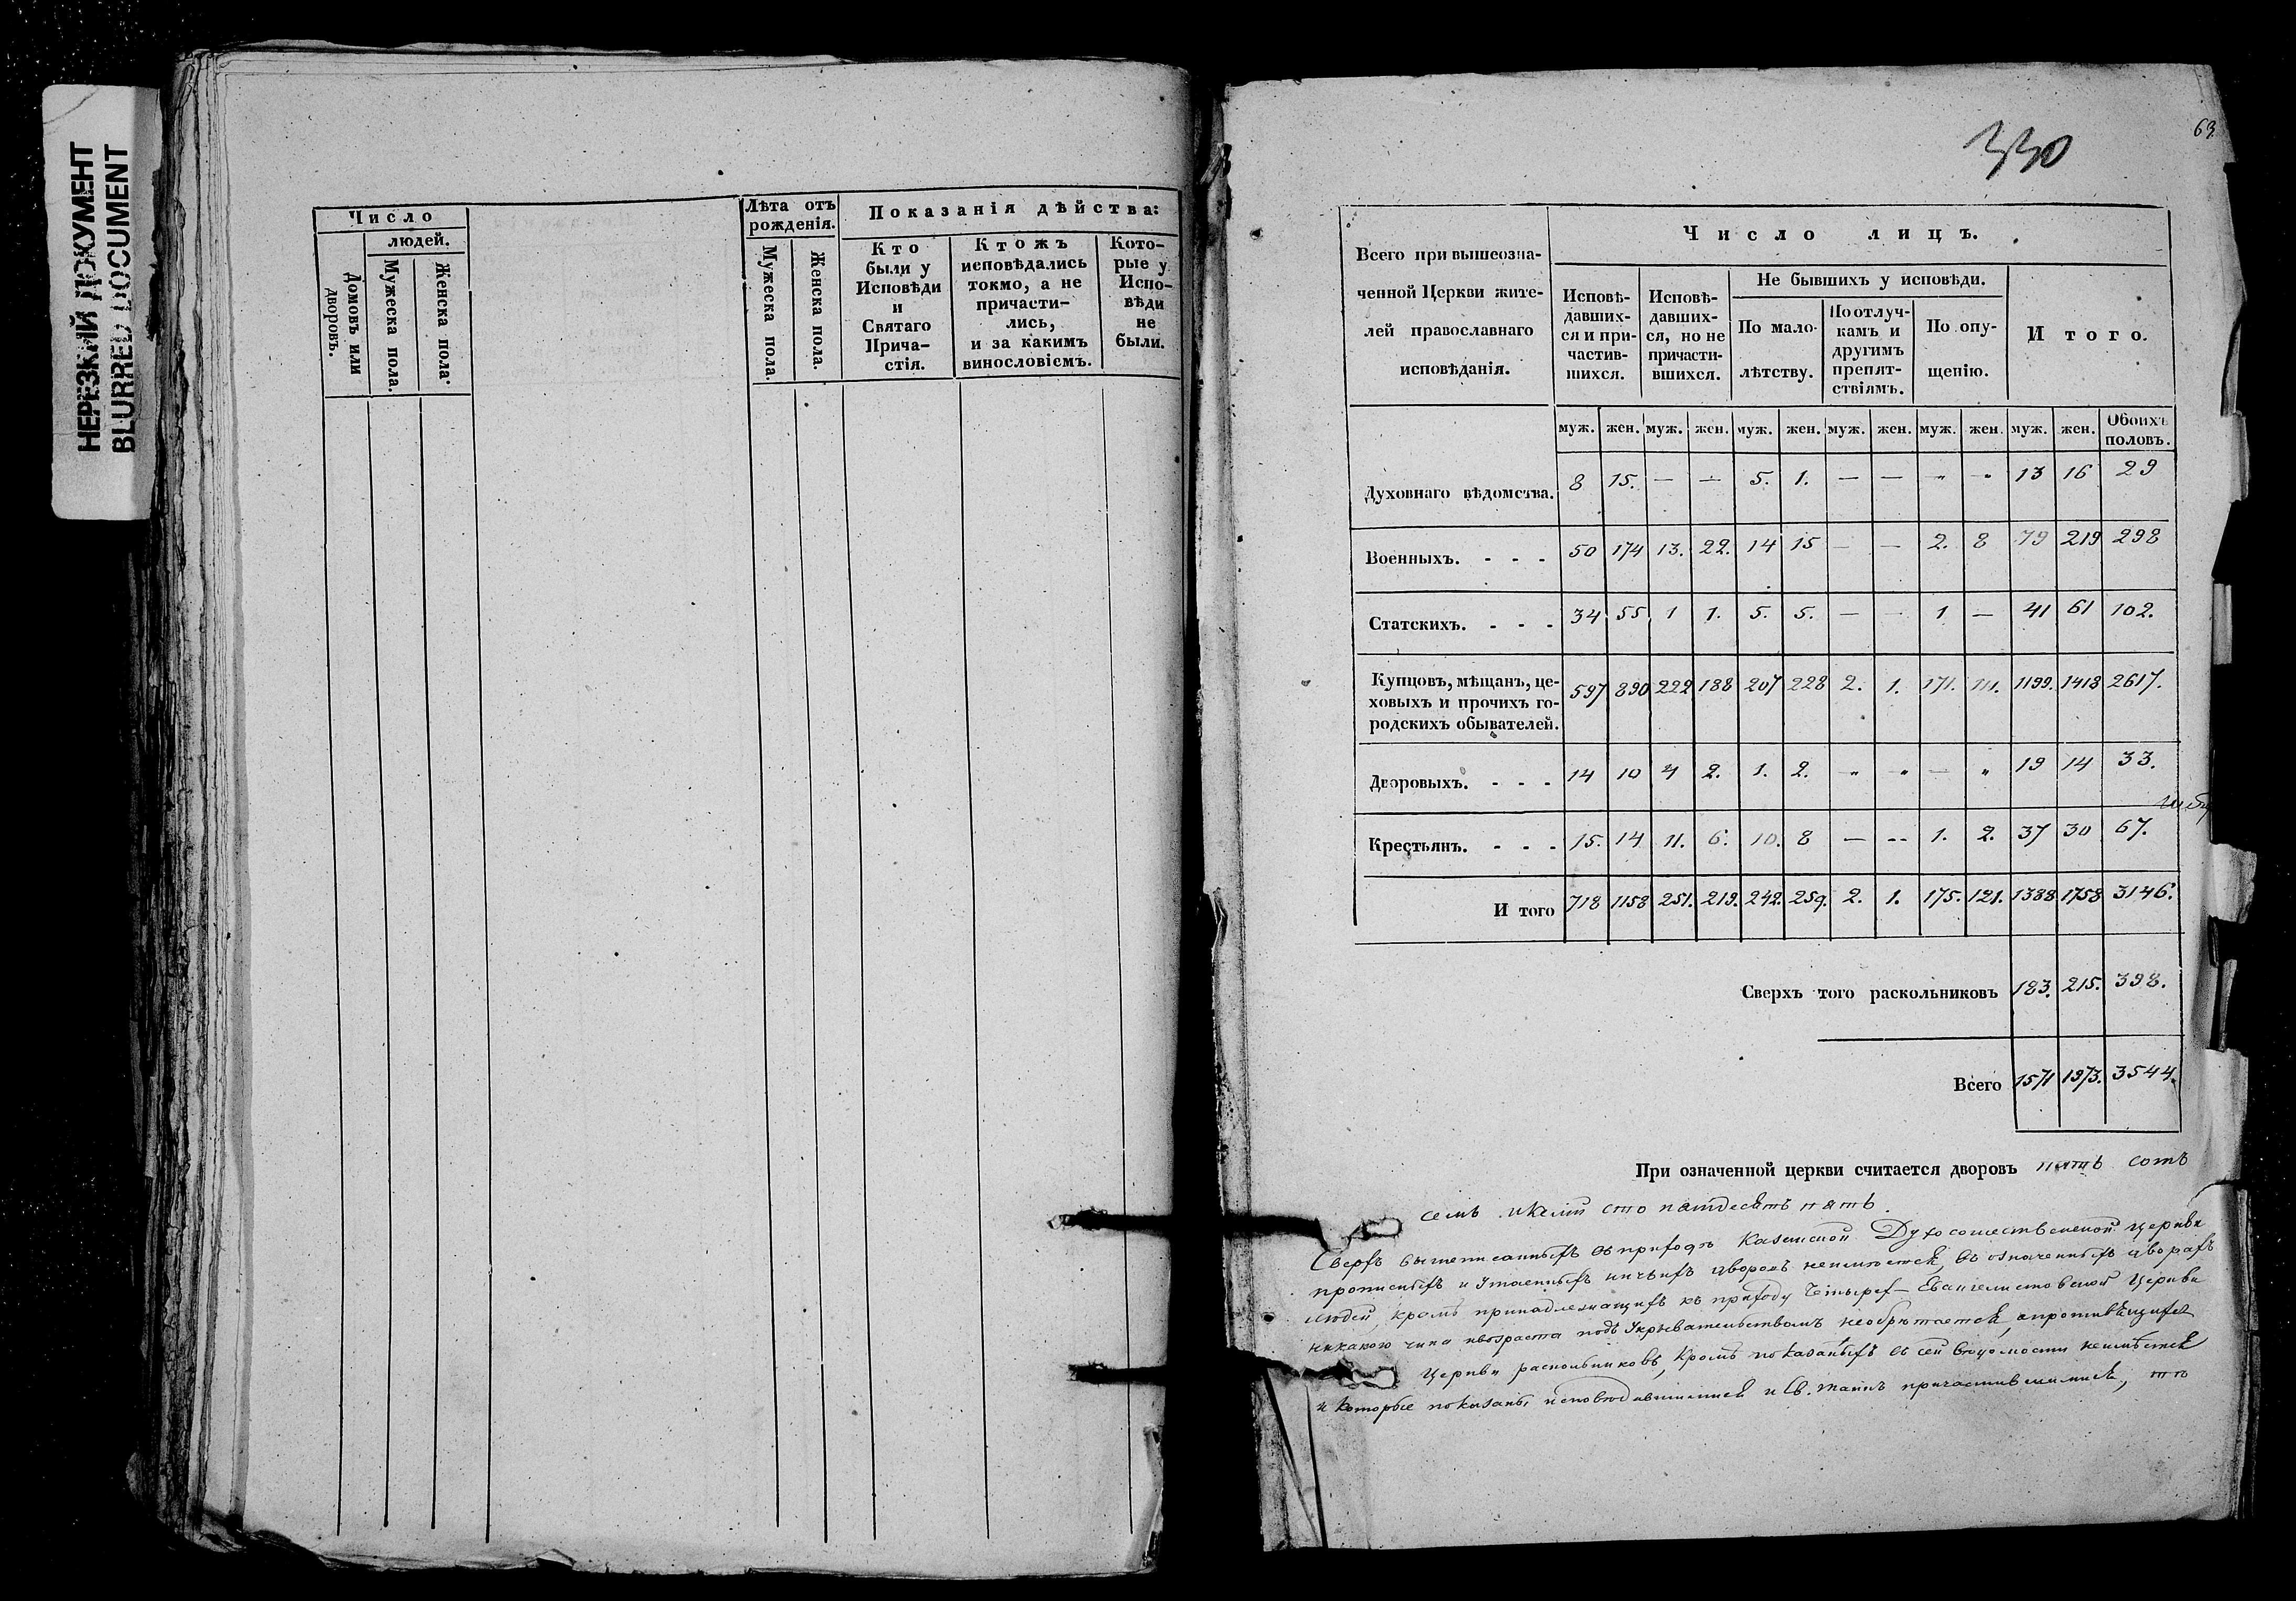 НЕРЕЗКИЙ ДОКУМЕНТ
BLURRED DOCUMENT
Число
людей.
Домовъ или дворовъ.
Мужеска пола.
Женска пола.
Лѣта отъ рожденія.
Мужеска пола.
Женска пола.
Показанія дѣйства:
Кто были у Исповѣди и Святаго Прича-стія.
Ктожъ исповѣдались токмо, а не причасти-лись, и за какимъ винословіемъ.
Кото-рые у Испо-вѣди не были.
330
69
Всего при вышеозна-
ченной Церкви жите-
лей православнаго
исповѣданія.
Число лицъ.
Исповѣ-давших-ся и при-частив-шихся.
Исповѣ-давших-ся, но не причасти-вшихся.
Не бывшихъ у исповѣди.
По мало-лѣтству.
По отлуч-камъ и другимъ препят-ствіямъ.
По опу-щенію.
И того.
муж. жен. муж. жен. муж. жен. муж. жен. муж. жен. муж. жен. Обоихъ половъ.
Духовнаго вѣдомства. 8 15. — — 5. 1. — — " " 13 16 29
Военныхъ. - - - 50 174 13. 22. 14 15 — — 2. 8 79 219 298
Статскихъ. - - - 34 55 1 1. 5. 5. — - 1 — 41 61 102.
Купцовъ, мѣщанъ, це-
ховыхъ и прочихъ го-
родскихъ обывателей. 597 890 222 188 207 228 2. 1. 171. 111. 1199. 1418 2617.
Дворовыхъ. - - - 14 10 4 2. 1. 2. " " — " 19 14 33.
Крестьянъ. - - - 15. 14 11. 6. 10. 8 — -- 1. 2. 37 30 67.
И того 718 1158 251. 219. 242. 259. 2. 1. 175. 121. 1388 1758 3146.
Сверхъ того раскольниковъ 183. 215. 398.
Всего 1571 1973. 3544.
При означенной церкви считается дворовъ пять сотъ
семь икелій сто пятдесятъ пять.
Сверхъ вышеписанныхъ въ приходѣ Казанской Духосошественской церкви
прописныхъ и утаенныхъ ничьихъ дворовъ неимѣется, въ означенныхъ дворахъ
людей, кромѣ принадлежащихъ къ приходу Четырех-Евангелистовской Церкви
никакого чина ивозраста подъ укрывательствомъ необрѣтается, апротивящихся
Церкви раскольниковъ, кромѣ показанныхъ въ сей вѣдомости неимѣется
и которые показаны исповѣдавшимися и Св. таинъ причастившимися, то